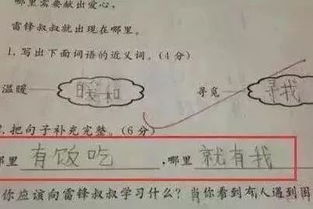 哪里需要献出爱心,
雷锋叔叔就出现在哪里。
1.写出下面词语的近义词。(4分)
温暖 暖和 寻觅 寻找
2.把句子补充完整。(6分)
哪里 有饭吃 ,哪里 就有我
你应该向雷锋叔叔学习什么?当你看到有人遇到困